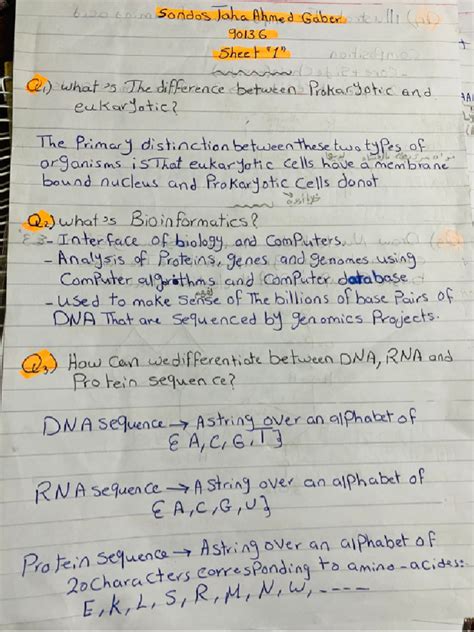 Sondos Taha Ahmed Gaber
90136
Sheet "1"
Q1) what's The difference between Prokaryotic and
eukaryotic?
The Primary distinction between these two types of
organisms is That eukaryotic cells have a membrane
bound nucleus and Prokaryotic Cells donot
Q2.) what's Bioinformatics?
- Interface of biology and ComPuters
- Analysis of Proteins, genes and genomes using
ComPuter algorithms and ComPuter database
- used to make sense of The billions of base Pairs of
DNA That are sequenced by genomics Projects.
Q3.) How Can we differentiate between DNA, RNA and
Protein sequence?
DNA sequence → A string over an alphabet of
{ A, C, G, T }
RNA sequence → A string over an alphabet of
{ A, C, G, U }
Protein sequence → A string over an alphabet of
20 characters corresponding to amino-acides:
E, K, L, S, R, M, N, W, ----